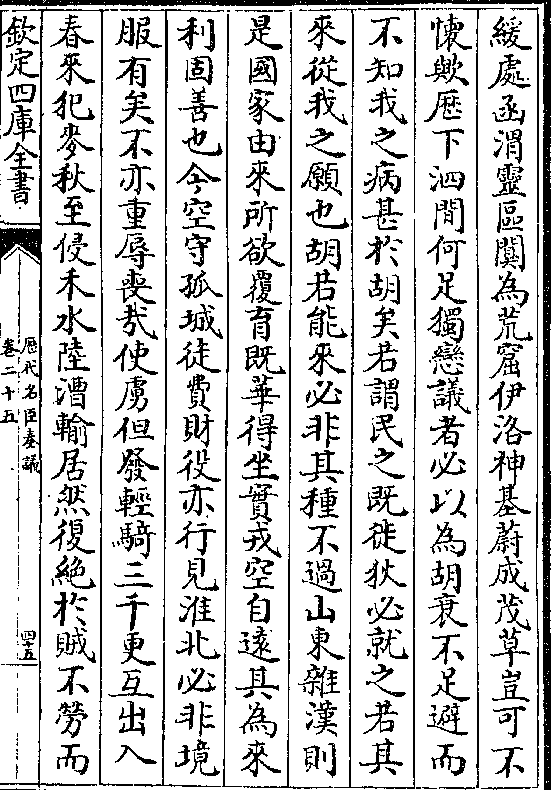 緩處函渭靈區闃為荒窟伊洛神基蔚成茂草豈可不
懷歟歴下泗間何足獨戀議者必以為胡衰不足避而
不知我之病甚於胡矣若謂民之既徙狄必就之若其
來從我之願也胡若能來必非其種不過山東雜漢則
是國家由來所欲覆育既華得坐實戎空自逺其為來
利固善也今空守孤城徒費財役亦行見淮北必非境
服有矣不亦重辱喪㢤使虜但發輕騎三千更互出入
春來犯麥秋至侵禾水陸漕輸居然復絶於賊不勞而
欽定四庫全書
歴代名臣奏議
卷二十五
四十五